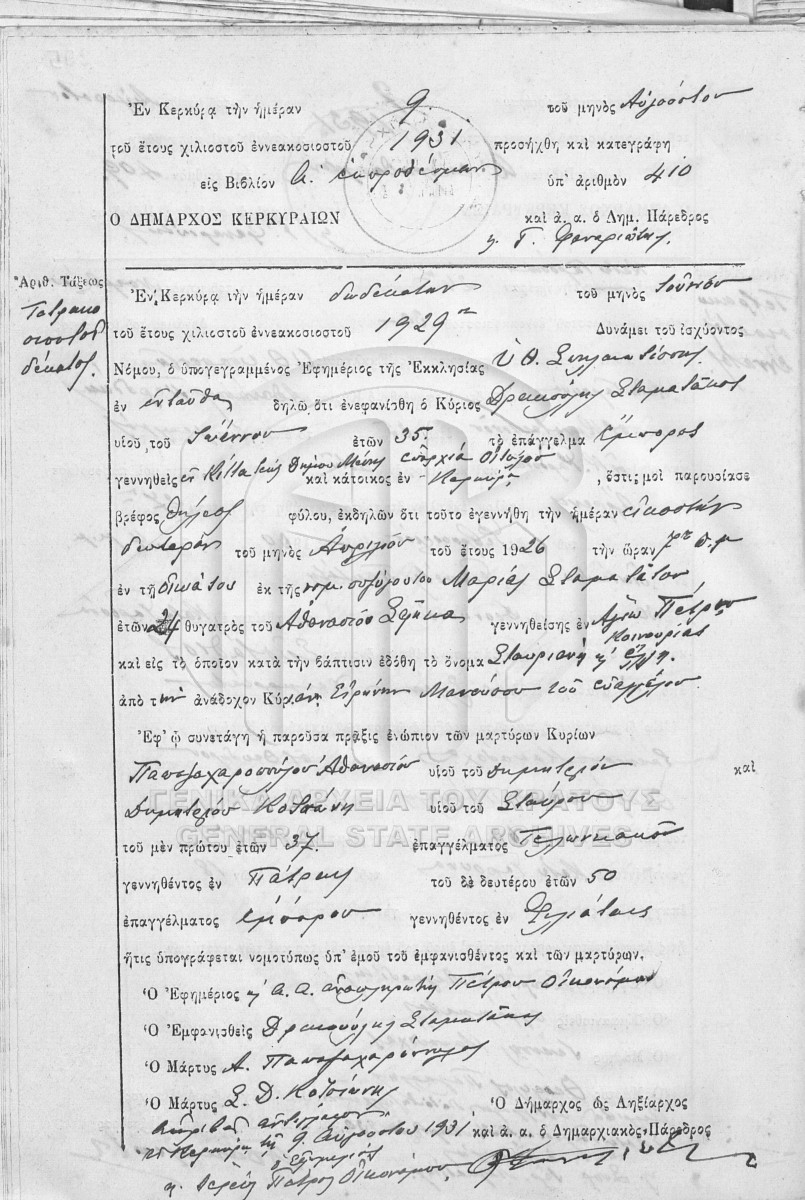 Ἐν Κερκύρᾳ τὴν ἡμέραν 9 τοῦ μηνὸς Αὐγούστου
τοῦ ἔτους χιλιοστοῦ ἐννεακοσιοστοῦ 1931 προσήχθη καὶ κατεγράφη
εἰς Βιβλίον Α. ὑπ' ἀριθμὸν 410
Ο ΔΗΜΑΡΧΟΣ ΚΕΡΚΥΡΑΙΩΝ καὶ ἀ. ἀ. ὁ Δημ. Πάρεδρος
Γ. Φαναριώτης
Ἀριθ. Τάξεως
Τετρακο
σιοστὸν
δέκατον.
Ἐν Κερκύρᾳ τὴν ἡμέραν δωδεκάτην τοῦ μηνὸς Ἰουνίου
τοῦ ἔτους χιλιοστοῦ ἐννεακοσιοστοῦ 1929 Δυνάμει τοῦ ἰσχύοντος
Νόμου, ὁ ὑπογεγραμμένος Ἐφημέριος τῆς Ἐκκλησίας Υ. Θ. Σπηλαιωτίσσης
ἐν ἐνταῦθα δηλῶ ὅτι ἐνεφανίσθη ὁ Κύριος Δρακούλης Σταματᾶκος
υἱοῦ τοῦ Ἰωάννου ἐτῶν 35. τὸ ἐπάγγελμα ἔμπορος
γεννηθεὶς ἐν Δήμου Μέσσης Οἰτύλου καὶ κάτοικος ἐν Κερκύρᾳ, ὅστις μοὶ παρουσίασε
βρέφος θήλεος φύλου, ἐκδηλῶν ὅτι τοῦτο ἐγεννήθη τὴν ἡμέραν εἰκοστὴν
δευτέραν τοῦ μηνὸς Ἀπριλίου τοῦ ἔτους 1926 τὴν ὥραν 7ην π.μ
ἐν τῇ οἰκίᾳ του ἐκ τῆς νομ. συζύγου του Μαρίας Σταματάκου
ἐτῶν 24 θυγατρὸς τοῦ Ἀθανασίου γεννηθείσης ἐν Ἁγίῳ Πέτρῳ
Κυνουρίας
καὶ εἰς τὸ ὁποῖον κατὰ τὴν βάπτισιν ἐδόθη τὸ ὄνομα Σταυριανὴ ἢ
ἀπὸ τὴν ἀνάδοχον Κύριαν Εἰρήνην Μανούσου τοῦ Εὐαγγέλου
Ἐφ' ᾧ συνετάγη ἡ παροῦσα πρᾶξις ἐνώπιον τῶν μαρτύρων Κυρίων
Παπαζαχαροπούλου Ἀθανασίου υἱοῦ τοῦ Δημητρίου καὶ
Δημητρίου Κοτσιάνη υἱοῦ τοῦ Σταύρου
ΓΕΝΙΚΑ ΑΡΧΕΙΑ ΤΟΥ ΚΡΑΤΟΥΣ
GENERAL STATE ARCHIVES
τοῦ μὲν πρώτου ἐτῶν 37. ἐπαγγέλματος Τελωνειακοῦ
γεννηθέντος ἐν Πάτραις τοῦ δὲ δευτέρου ἐτῶν 50
ἐπαγγέλματος ἐμπόρου γεννηθέντος ἐν Φιλιάταις
ἥτις ὑπογράφεται νομοτύπως ὑπ' ἐμοῦ τοῦ ἐμφανισθέντος καὶ τῶν μαρτύρων.
Ὁ Ἐφημέριος Α. Α. ἀναπληρωτὴς Πέτρος Οἰκονόμου
Ὁ Ἐμφανισθεὶς Δρακούλης Σταματᾶκος
Ὁ Μάρτυς Α. Παπαζαχαρόπουλος
Ὁ Μάρτυς Σ. Δ. Κοτσιάνης Ὁ Δήμαρχος ὡς Ληξίαρχος
Ἀκριβὲς ἀντίγραφον
Ἐν Κερκύρᾳ τῇ 9 Αὐγούστου 1931 καὶ ἀ. ἀ. ὁ Δημαρχιακὸς Πάρεδρος
ὁ Ἐφημέριος
Ἱερεὺς Πέτρος Οἰκονόμου